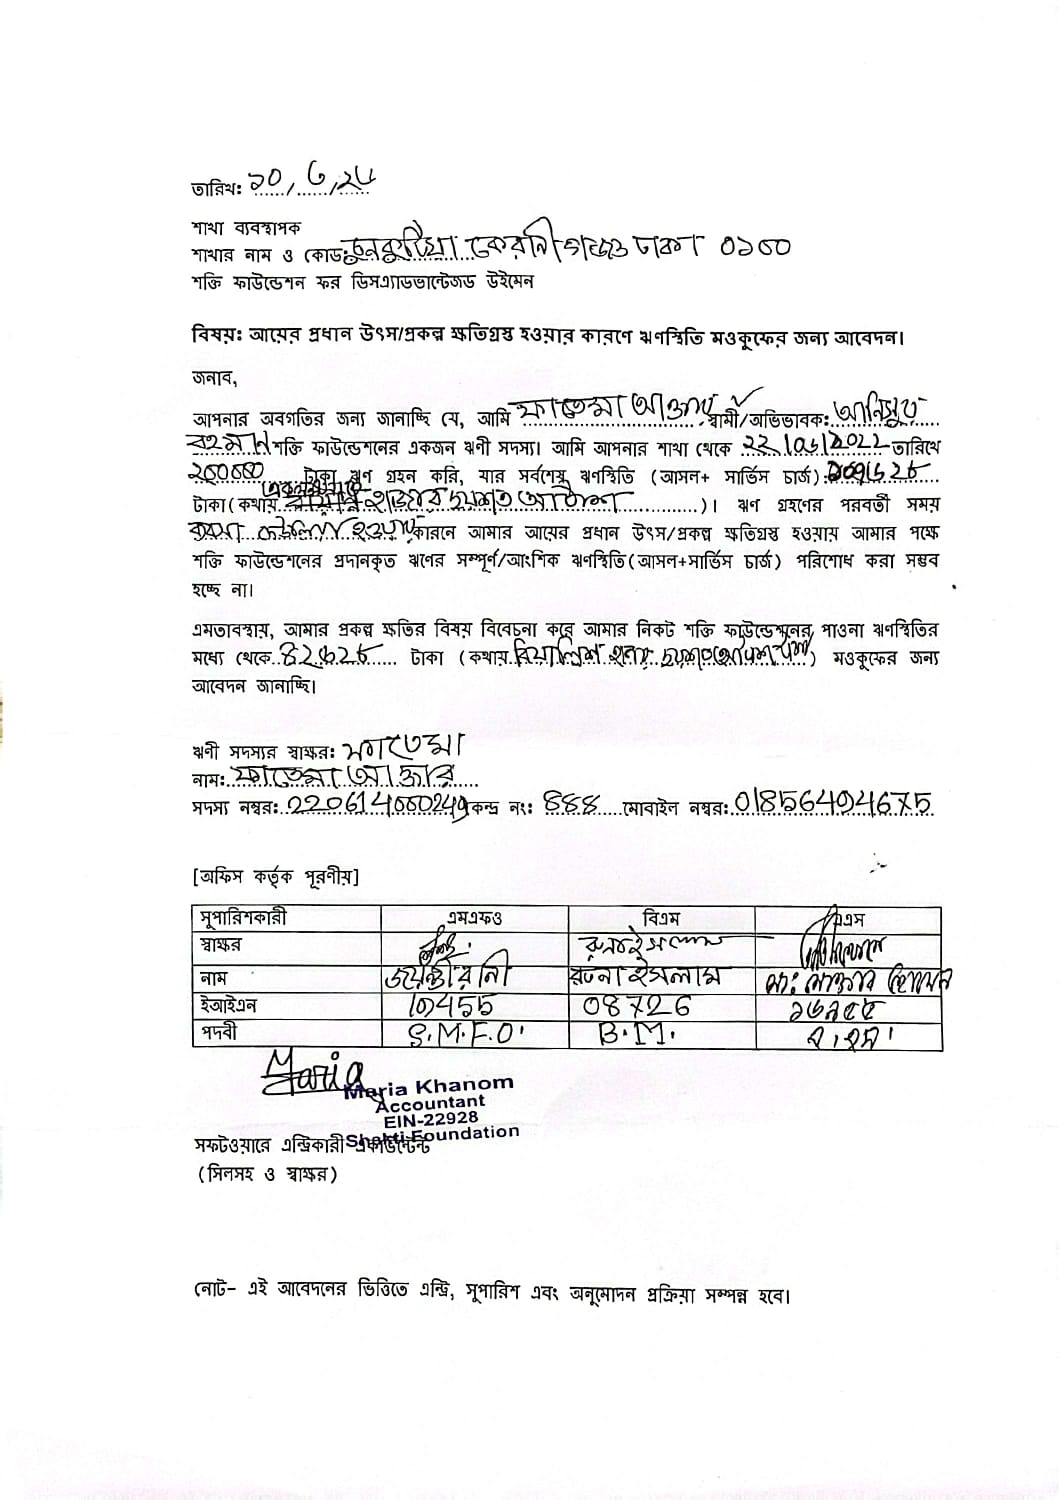 তারিখ: ১০/৬/২৫
শাখা ব্যবস্থাপক
শাখার নাম ও কোড: কেরানীগঞ্জ ঢাকা ০১০০
শক্তি ফাউন্ডেশন ফর ডিসএ্যাডভান্টেজড উইমেন
বিষয়: আয়ের প্রধান উৎস/প্রকল্প ক্ষতিগ্রস্ত হওয়ার কারণে ঋণস্থিতি মওকুফের জন্য আবেদন।
জনাব,
আপনার অবগতির জন্য জানাচ্ছি যে, আমি ফাতেমা আক্তার স্বামী/অভিভাবক: আনিসুর
রহমান শক্তি ফাউন্ডেশনের একজন ঋণী সদস্য। আমি আপনার শাখা থেকে তারিখে
২০০০০০ টাকা ঋণ গ্রহন করি, যার সর্বশেষ ঋণস্থিতি (আসল+ সার্ভিস চার্জ):
টাকা(কথায় হাজার )। ঋণ গ্রহণের পরবর্তী সময়
কারনে আমার আয়ের প্রধান উৎস/প্রকল্প ক্ষতিগ্রস্ত হওয়ায় আমার পক্ষে
শক্তি ফাউন্ডেশনের প্রদানকৃত ঋণের সম্পূর্ণ/আংশিক ঋণস্থিতি(আসল+সার্ভিস চার্জ) পরিশোধ করা সম্ভব
হচ্ছে না।
এমতাবস্থায়, আমার প্রকল্প ক্ষতির বিষয় বিবেচনা করে আমার নিকট শক্তি ফাউন্ডেশনের পাওনা ঋণস্থিতির
মধ্যে থেকে টাকা (কথায় বিয়াল্লিশ হাজার ) মওকুফের জন্য
আবেদন জানাচ্ছি।
ঋণী সদস্যর স্বাক্ষর: ফাতেমা
নাম: ফাতেমা আক্তার
সদস্য নম্বর: কেন্দ্র নং: ৪৪৪ মোবাইল নম্বর:
[অফিস কর্তৃক পূরণীয়]
সুপারিশকারী এমএফও বিএম এএস
স্বাক্ষর
নাম জয়ন্তী রানী রত্না ইসলাম
ইআইএন 08726
পদবী S.M.F.O. B.M.
Maria
Maria Khanom
Accountant
EIN-22928
Shakti Foundation
সফটওয়ারে এন্ট্রিকারী একাউন্টেন্ট
(সিলসহ ও স্বাক্ষর)
নোট- এই আবেদনের ভিত্তিতে এন্ট্রি, সুপারিশ এবং অনুমোদন প্রক্রিয়া সম্পন্ন হবে।